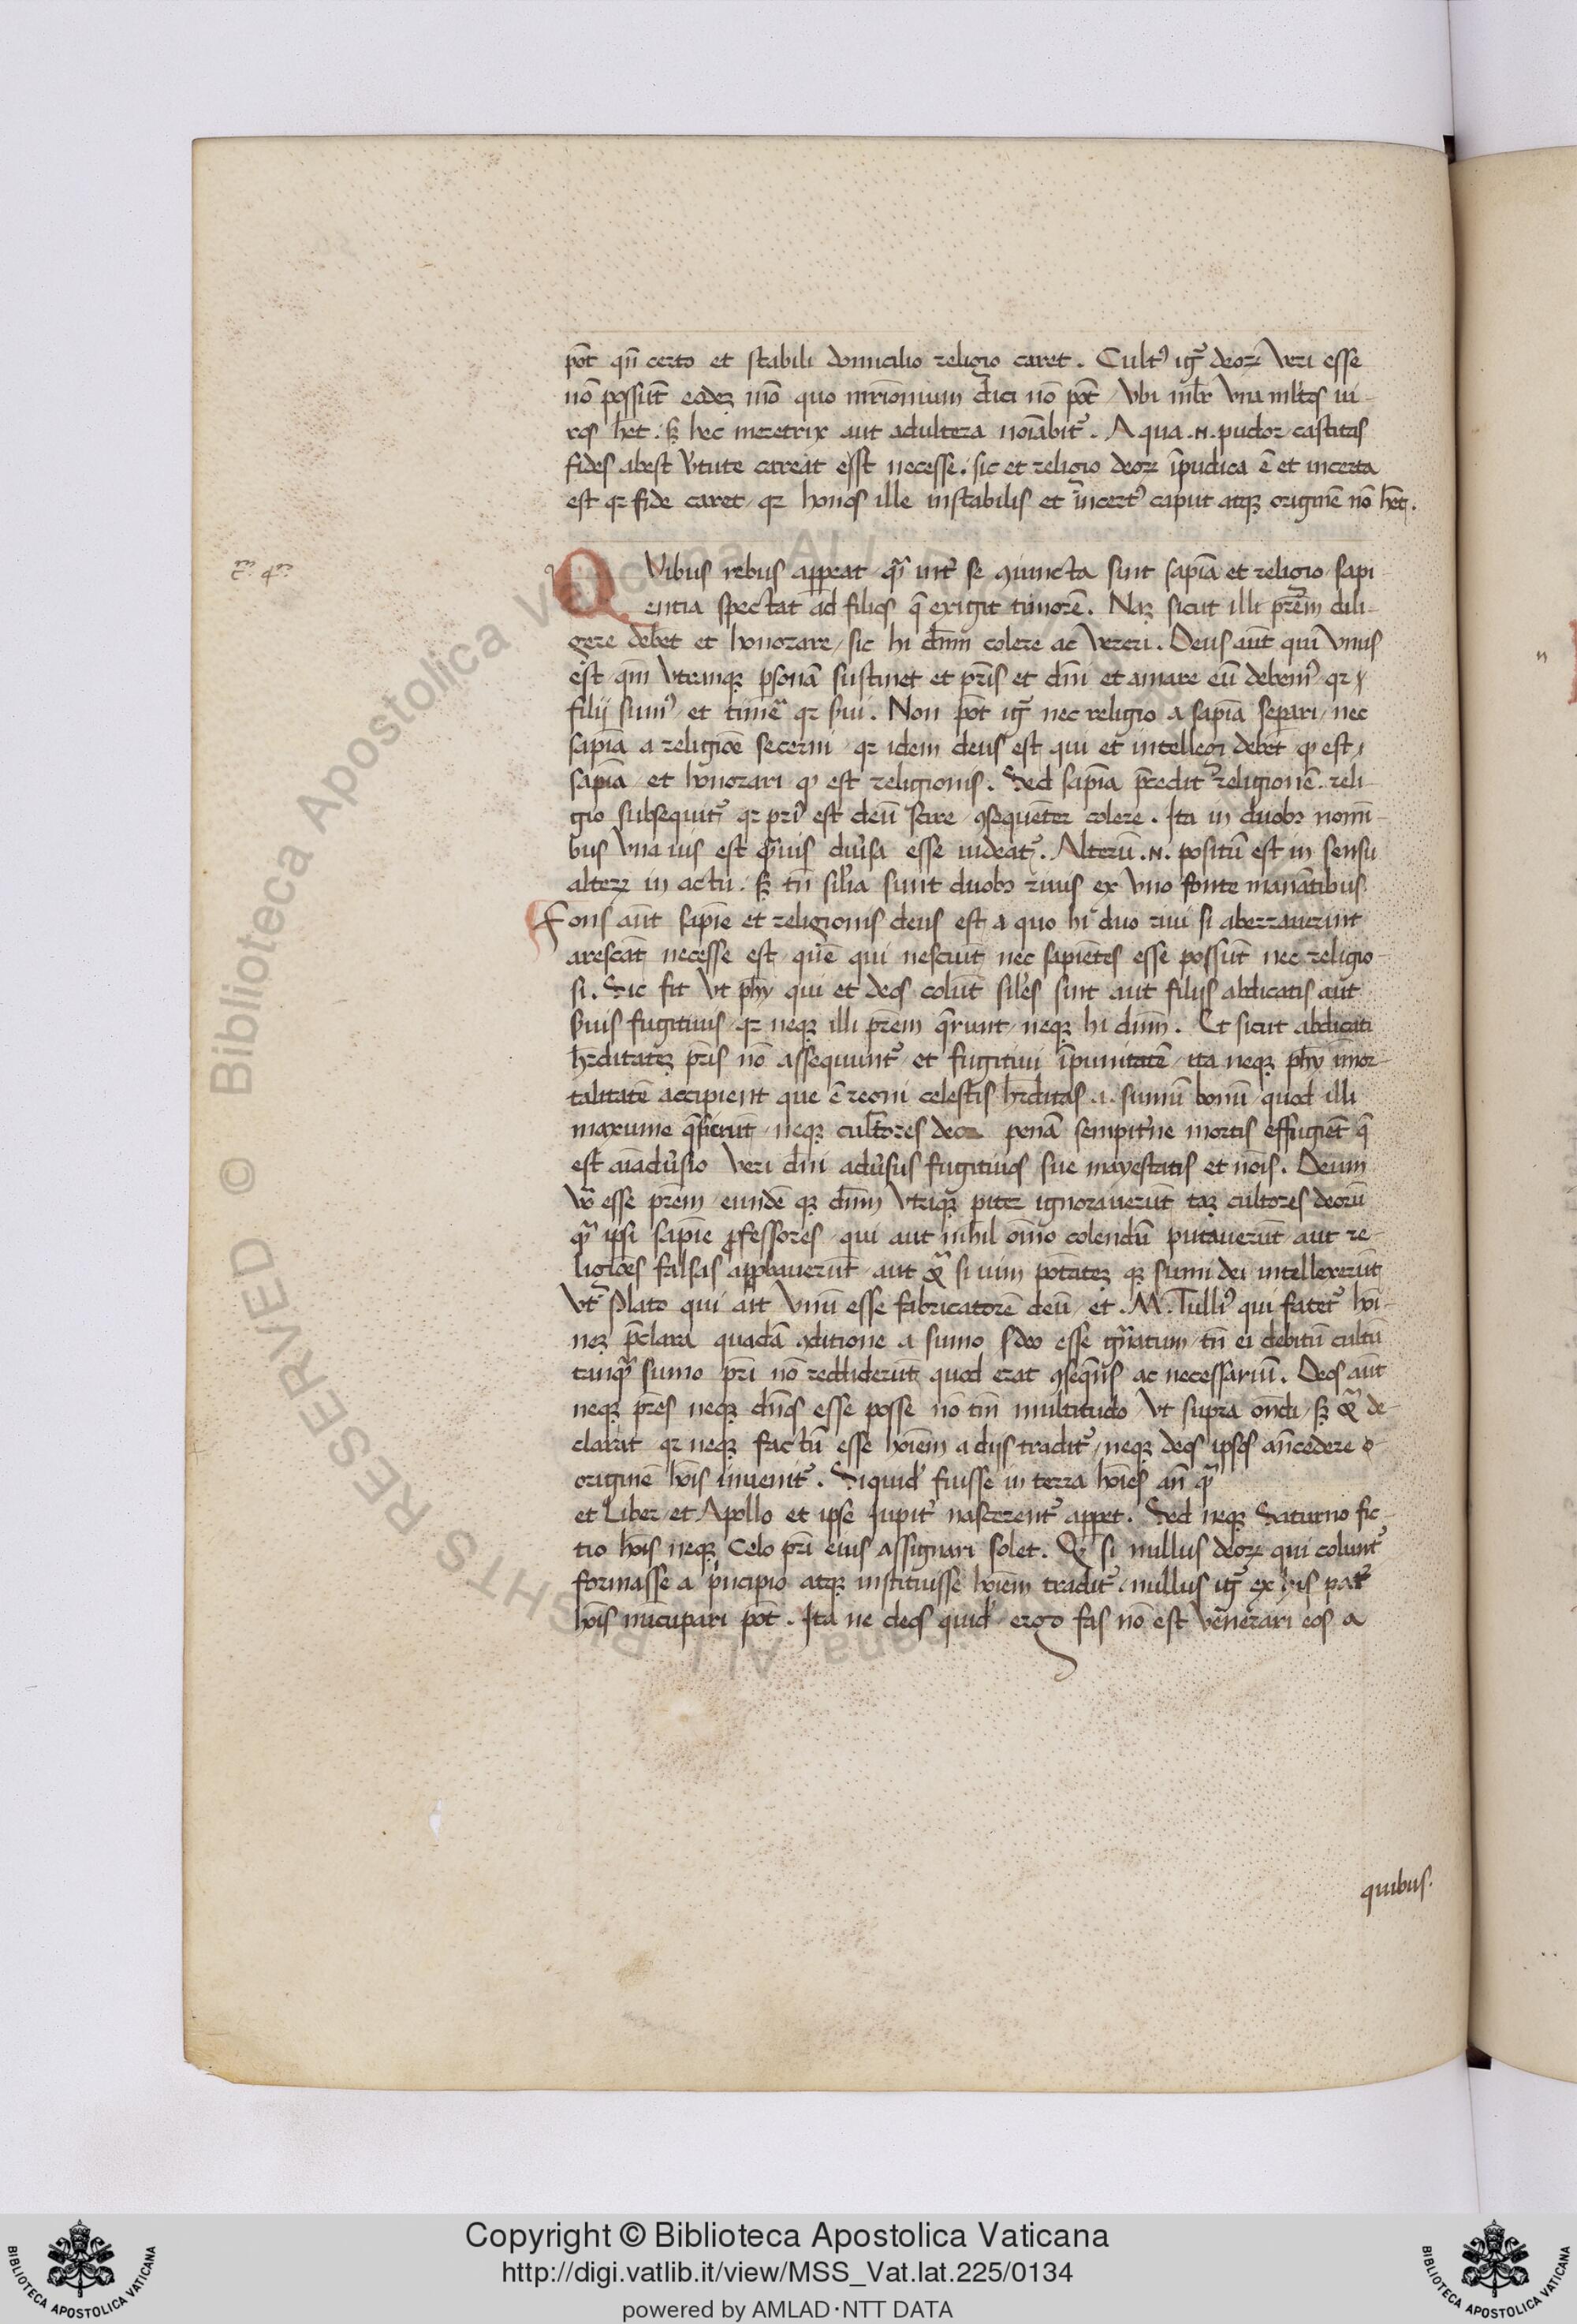 pōt qn̄ certo et stabili domicilio religio caret . Cultꝰ ig̃ deoꝝ Veri esse
nō possūt eadeꝫ mō quo mr̄imonium dici nō pōt / Vbi ml̄r Vna ml̄tos ui-
ros het . sꝫ hec meretrix aut adultera noīabit᷑ . A qua .N. pudor castitas
fides abest v̓tute careat esst necesse . sic et religio deoꝝ īpudica ē et incerta
est qꝛ fide caret / qꝛ honos ille instabilis et incertꝰ caput atqꝫ originē nō hēt .
cm̄ 4m̄
QVibus rebus appeat qͣ int̓ se ꝯiuncta sint sapīa et religio / sapi
entia spectat ad filios q̄ exigit timorē . Naꝫ sicut illi pr̄em dili-
gere debēt et honorare / sic hi dn̄m colere ac Vereri . Deus aūt quī Vnus
est qm̄ Vtranqꝫ ꝑsonā sustinet et pr̄is et dn̄i et amare eū debemꝰ qꝛ
filij sumꝰ / et timeͣ qꝛ ẜui . Non pōt ig̃ nec religio a sapīa separi / nec
sapīa a religiōe secerni / qꝛ idem deus est qui et intellegi debet qͩ est
sapīa / et honorari qͩ est religionis . Sed sapīa p̄cedit religionē . reli-
gio subsequit᷑ qꝛ prīꝰ est deū scire / ꝯsequēter colere . Ita in duobꝫ nomī-
bus Vna uis est qͣuis diu̓sa esse uideat᷑ . Alterū .N. positū est in sensu
alterꝫ in actu . sꝫ tn̄ sil̓ia sunt duobꝫ riuis ex Vno fonte manātibus
Fons aūt sapīe et religionis deus est a quo hi duo riui si aberrauerint
arescāt necesse est / quē qui nesciūt nec sapiētes esse possūt nec religio-
si . Sic fit Vt ph̄y qui et deos colūt sil̓es sint aut filijs abdicatis aūt
ẜuis fugitiuis / qꝛ neqꝫ illi pr̄em q̄runt / neqꝫ hi dn̄m . Et sicut abdicati
hr̄editateꝫ pr̄is nō assequunt᷑ / et fugitiui īpunitatē / ita neqꝫ ph̄y īmor-
talitatē accipient que ē regni celestis hr̄editas .i. sumū bonū / quod illi
maxume q̄sierūt / neqꝫ cultores deoꝝ penā sempit̓ne mortis effugiēt q̄
est aīadu̓sio Veri dn̄i adu̓sus fugitiuos sue mayestatis et nōis . Deum
Vͦ esse pr̄em / eundē qꝫ dn̄m Vtriqꝫ pit̓ ignorauerūt taꝫ cultores deorū
qͣ ipsi sapīe ꝓfessores / qui aut nihil oīno colendū putauerūt / aut re-
ligiōes falsas apꝓbauerūt / aut si uim potētateꝫ qꝫ sumi dei intellexerūt
Vt Plato qui ait Vnū esse fabricatorē deū / et .M. Tulliꝰ qui fatet᷑ hoī-
neꝫ p̄clara quadā ꝯditione a sumo deo esse gn̓atum / tn̄ ei debitū cultū
tanqͣ sumo pr̄i nō reddiderūt / quod erat ꝯsequēs ac necessariū . Deos aūt
neqꝫ pr̄es neqꝫ dn̄os esse posse nō tm̄ multitudo / Vt supra ōndi / sꝫ de-
clarat qꝛ neqꝫ factū esse hoīem a dijs tradit᷑ / neqꝫ deos ipsos an̄cedere
originē hoīs inuenit᷑ . Siquid̓ fuisse in terra hoīes an̄ qͣ
et Liber et Apollo et ipse Iupit̓ nascerent᷑ appet . Sed neqꝫ Saturno fic-
tio hoīs neqꝫ Celo pr̄i eius assignari solet . Qͩ si nullus deoꝝ qui colunt᷑
formasse a p̓ncipio atqꝫ instituisse hoīem tradit᷑ / nullus ig̃ ex his pat̓
hoīs nūcupari pōt . Ita ne deos quid̓ ergo fas nō est Venerari eos a
quibus .
Copyright © Biblioteca Apostolica Vaticana
http://digi.vatlib.it/view/MSS_Vat.lat.225/0134
powered by AMLAD·NTT DATA